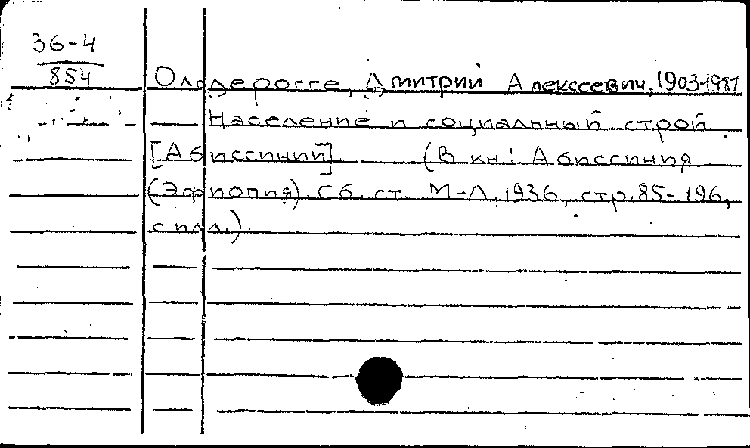 36-4
854
Ольдерогге, Дмитрий Алексеевич, 1903-1987
Население и социальный строй
[Абиссинии] (В кн: Абиссиния
(Эфиопия) Сб. ст. М-Л, 1936, стр. 85-196,
с илл.)